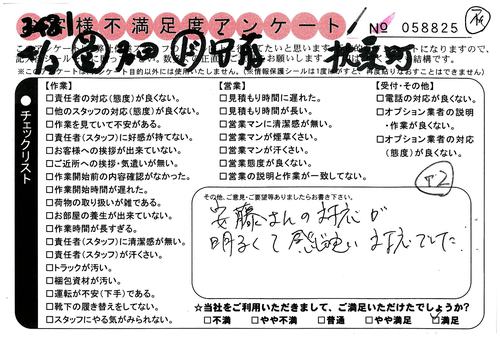 お客様不満足度アンケート
No 058825
※このアンケートは
チェックリスト
【作業】
□責任者の対応(態度)が良くない。
□他のスタッフの対応(態度)が良くない。
□作業を見ていて不安がある。
□責任者(スタッフ)に好感が持てない。
□お客様への挨拶が出来ていない。
□ご近所への挨拶・気遣いが無い。
□作業開始前の内容確認がなかった。
□作業開始時間が遅れた。
□荷物の取り扱いが雑である。
□お部屋の養生が出来ていない。
□作業時間が長すぎる。
□責任者(スタッフ)に清潔感が無い。
□責任者(スタッフ)が汗くさい。
□トラックが汚い。
□梱包資材が汚い。
□運転が不安(下手)である。
□靴下の履き替えをしてない。
□スタッフにやる気がみられない。
【営業】
□見積もり時間に遅れた。
□見積もり時間が長い。
□営業マンに清潔感が無い。
□営業マンが煙草くさい。
□営業マンが汗くさい。
□営業態度が良くない。
□営業の説明と作業が一致してない。
【受付・その他】
□電話の対応が良くない。
□オプション業者の説明
・作業が良くない。
□オプション業者の対応
(態度)が良くない。
その他、ご意見・ご要望等ありましたらお書き下さい。
安藤さんの対応が
明るくて感じ良い対応でした。
☆当社をご利用いただきまして、ご満足いただけたでしょうか?
□不満 □やや不満 □普通 □やや満足 □満足